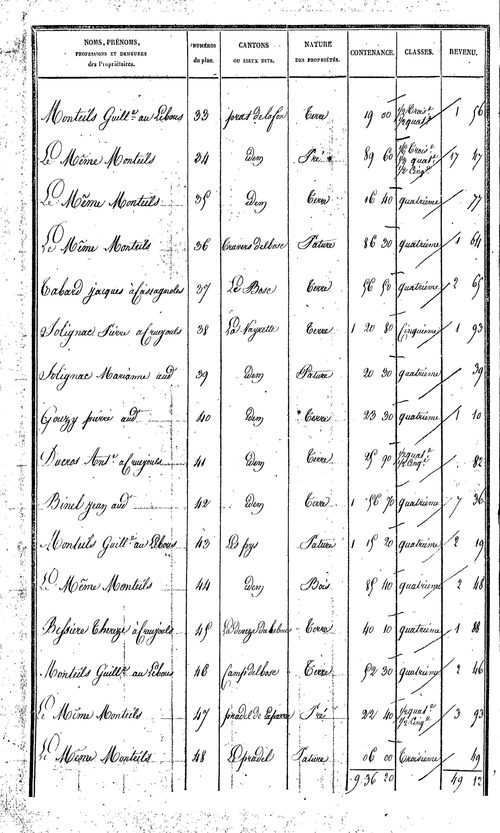 NOMS, PRÉNOMS, PROFESSIONS ET DEMEURES des Propriétaires. NUMÉROS du plan. CANTONS OU LIEUX DITS. NATURE DES PROPRIÉTÉS. CONTENANCE. CLASSES. REVENU.
Monteils Guill.e au Lebous 33 prat delafon Terre 19 00 1/2 Trois.e 1/2 quat.e 1 56
Le Même Monteils 34 idem Pré 89 60 1/3 Trois.e 1/3 quat.e 1/3 Cinq.e 17 47
Le Même Monteils 35 idem Terre 16 40 quatrième 77
Le Même Monteils 36 travers delbosc Pature 86 30 quatrième 1 64
Tabard Jacques à Cassagnoles 37 Le Bosc Terre 56 50 quatrième 2 65
Solignac Pierre a Cruejouls 38 La Vayrette Terre 1 20 80 Cinquième 1 93
Solignac Marianne aud 39 idem Pature 20 30 quatrième 39
Gouzy pierre aud 40 idem Terre 23 30 quatrième 1 10
Ducros Ant.e a Cruejouls 41 idem Terre 25 90 1/2 quat.e 1/2 Cinq.e 82
Binel jean aud 42 idem Terre 1 56 70 quatrième 7 36
Monteils Guill.e au Lebous 43 Les pys Pature 1 15 20 quatrième 2 19
Le Même Monteils 44 idem Bois 85 40 quatrième 2 48
Bessiere Therese à Cruejouls 45 Terre 40 10 quatrième 1 88
Monteils Guill.e au Lebous 46 Camp delbosc Terre 52 30 quatrième 2 46
Le Même Monteils 47 pradel de Pré 22 40 1/2 quat.e 1/2 Cinq.e 3 93
Le Même Monteils 48 Le pradel Pature 06 00 Troisième 49
9 36 20 49 12